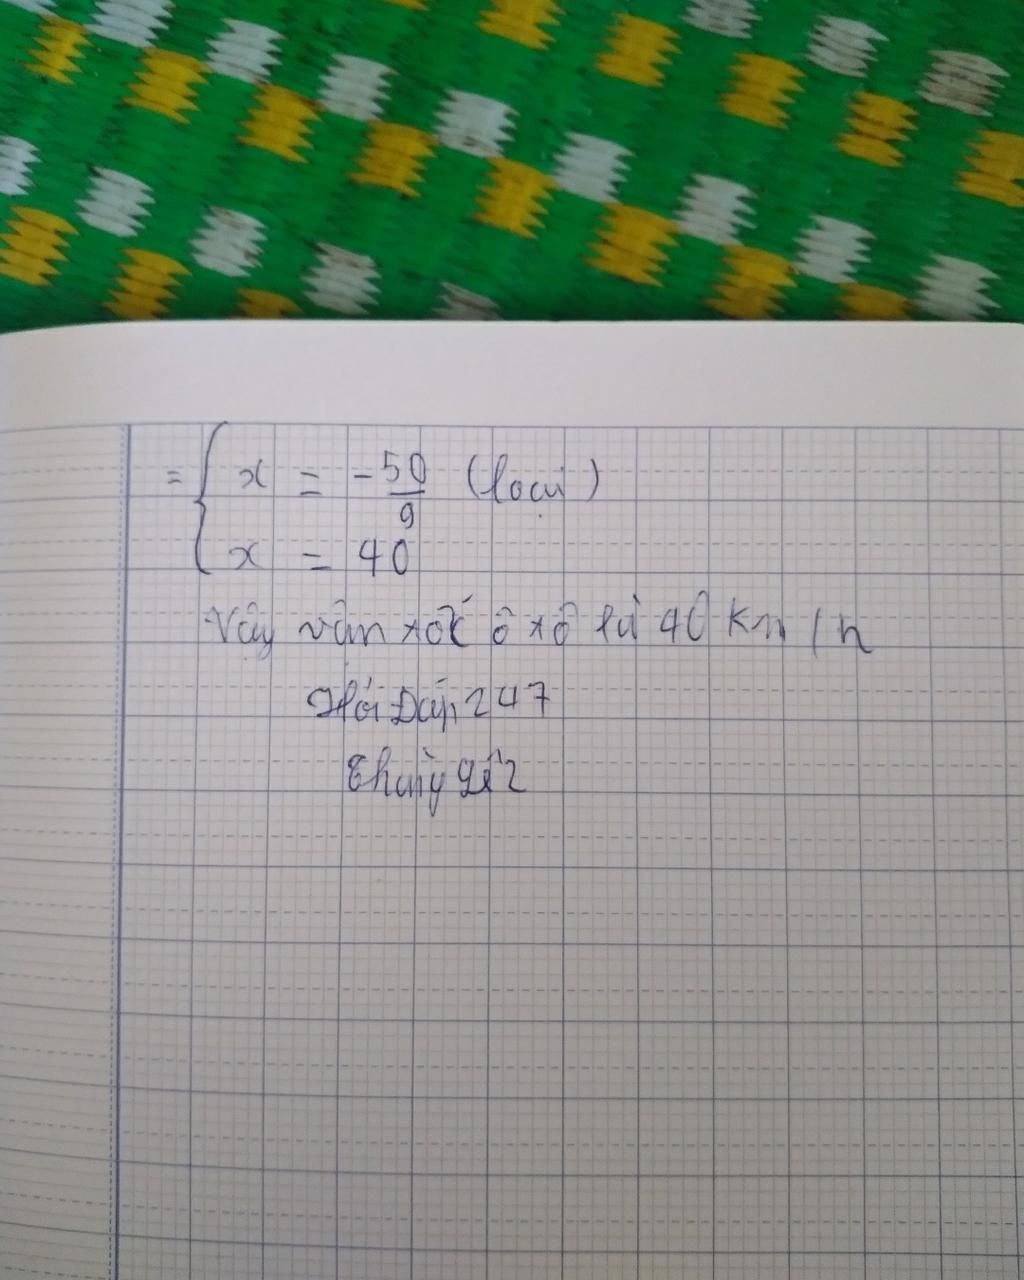 = { x = -50/9 (loại)
x = 40
Vậy vận tốc ô tô là 40 km/h
Hỏi Đáp 247
Thùy